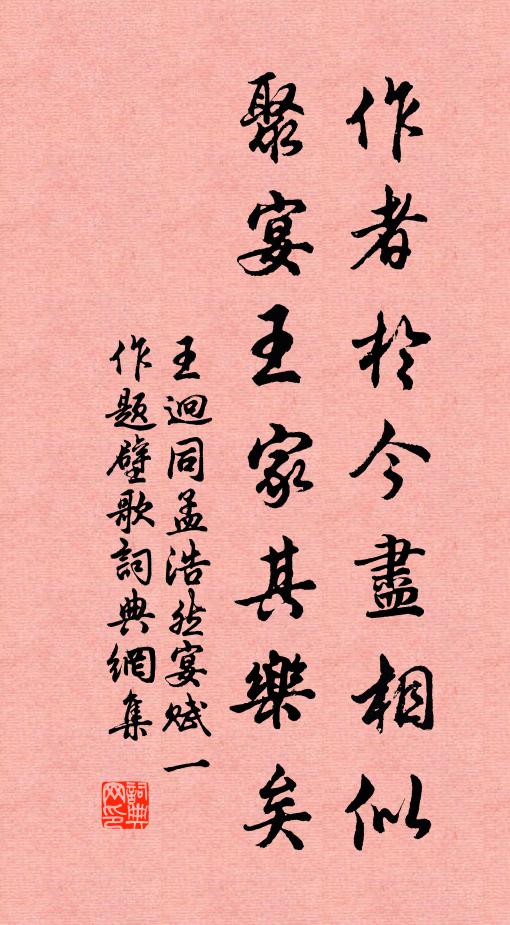 作者於今盡相似
聚宴王家其樂矣
王迥同孟浩然宴賦一
作題壁歌詞典網集
詞典網印